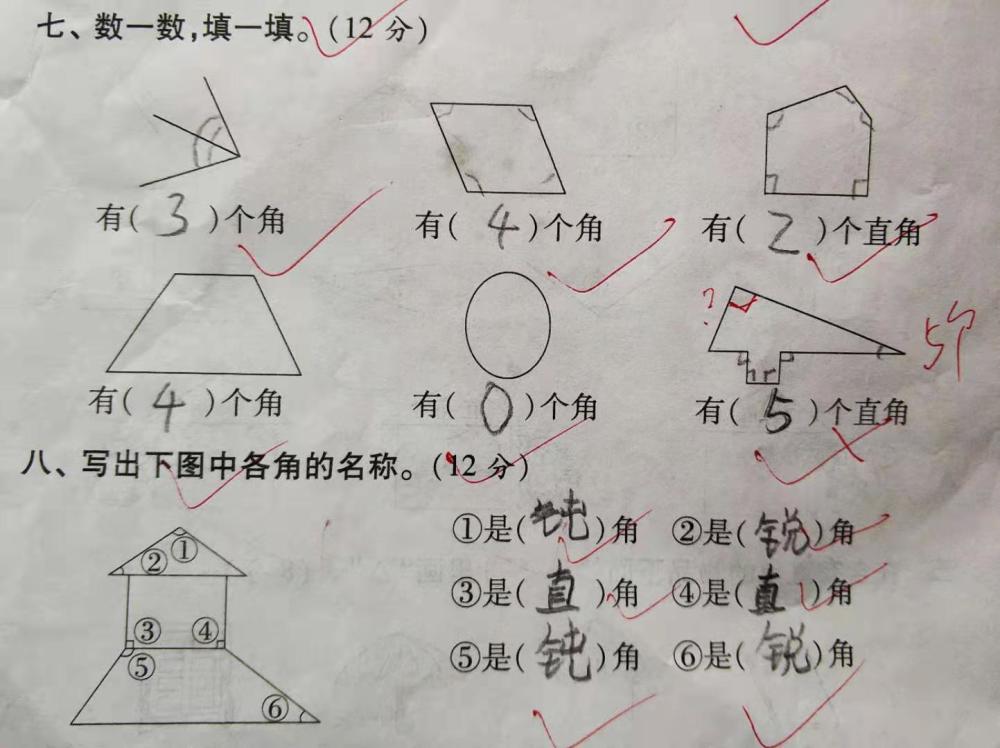 七、数一数,填一填。(12 分)
有( 3 )个角 有( 4 )个角 有( 2 )个直角
? 5个
有( 4 )个角 有( 0 )个角 有( 5 )个直角
八、写出下图中各角的名称。(12 分)
① ②
③ ④
⑤ ⑥
①是(钝)角 ②是(锐)角
③是(直)角 ④是(直)角
⑤是(钝)角 ⑥是(锐)角